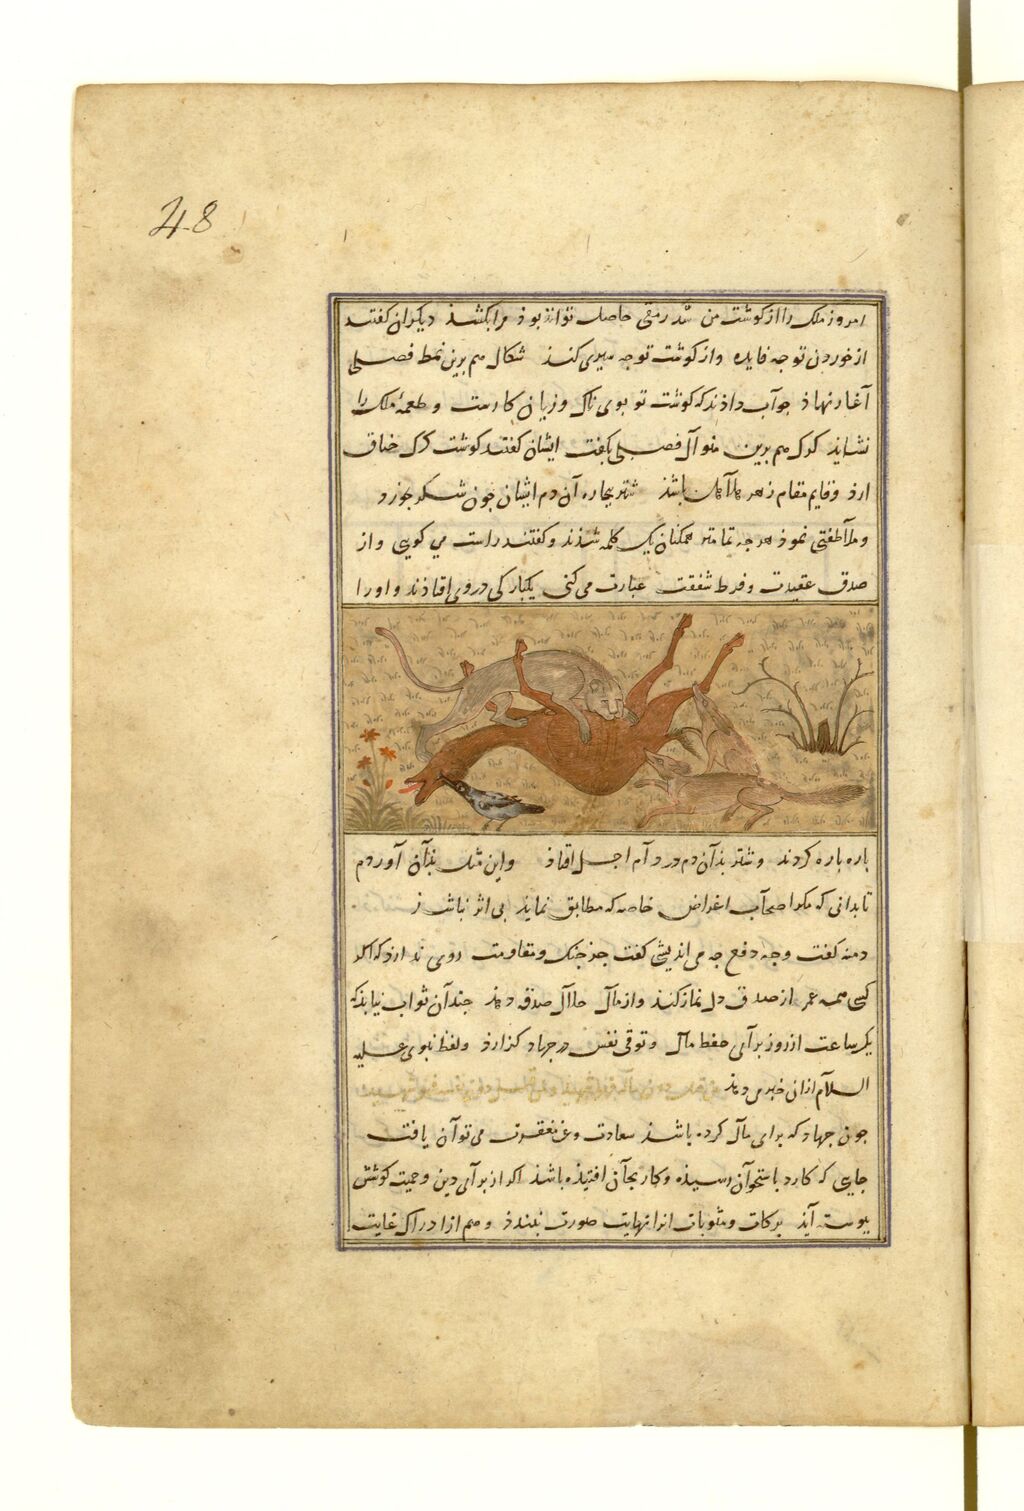 48
امروز ملک را از کوشت من سدّ رمقی حاصل تواند بوذ مرا بکشذ دیکران کفتند
از خوردن تو جه فایده و از کوشت تو جه سیری کنذ شکال هم برین نمط فصلی
آغاز نهاذ جوآب داذند که کوشت تو بوی ناک و زیان کارست و طعمهٔ ملک را
نشاید کرک هم برین منوآل فصلی بکفت ایشان کفتند کوشت کرک خناق
ارذ و قایم مقام زهر هلاهل باشذ شتر بجاره آن دم ایشان جون شکر بجوزد
و ملآطفتی نموذ هرجه تمامتر همکنان یک کلمه شذند و کفتند راست می کویی و از
صدق عقیدت و فرط شفقت عبارت می کنی یکبارکی در وی افتاذند و او را
باره باره کردند و شتر بذآن دم در دآم اجل افتاذ و این مثل بذآن آوردم
تا بدانی که مکر اصحآب اغراض خاصه که مطابق نمایذ بی اثر نباشذ
دمنه کفت وجه دفع جه می اندیشی کفت جز جنک و مقاومت روی ندارذ که اکر
کسی همه عمر از صدق دل نماز کنذ و از مآل حلآل صدقه دهذ جندآن ثواب نیابذ که
یکساعت از روز برآی حفظ مآل و توقی نفس در جهاد کذارذ و لفظ نبوی علیه
السلآم ازان خبر می دهذ
جون جهاد که برای مآل کرده باشذ سعادت و مغفرت می توآن یافت
جایی که کارد باستخوآن رسیذه و کار بجآن افتیذه باشذ اکر از برآی دین و حمیت کوشش
بیوسته آیذ برکات و مثوبات انرا نهایت صورت نبندذ و هم از ادراک غایت